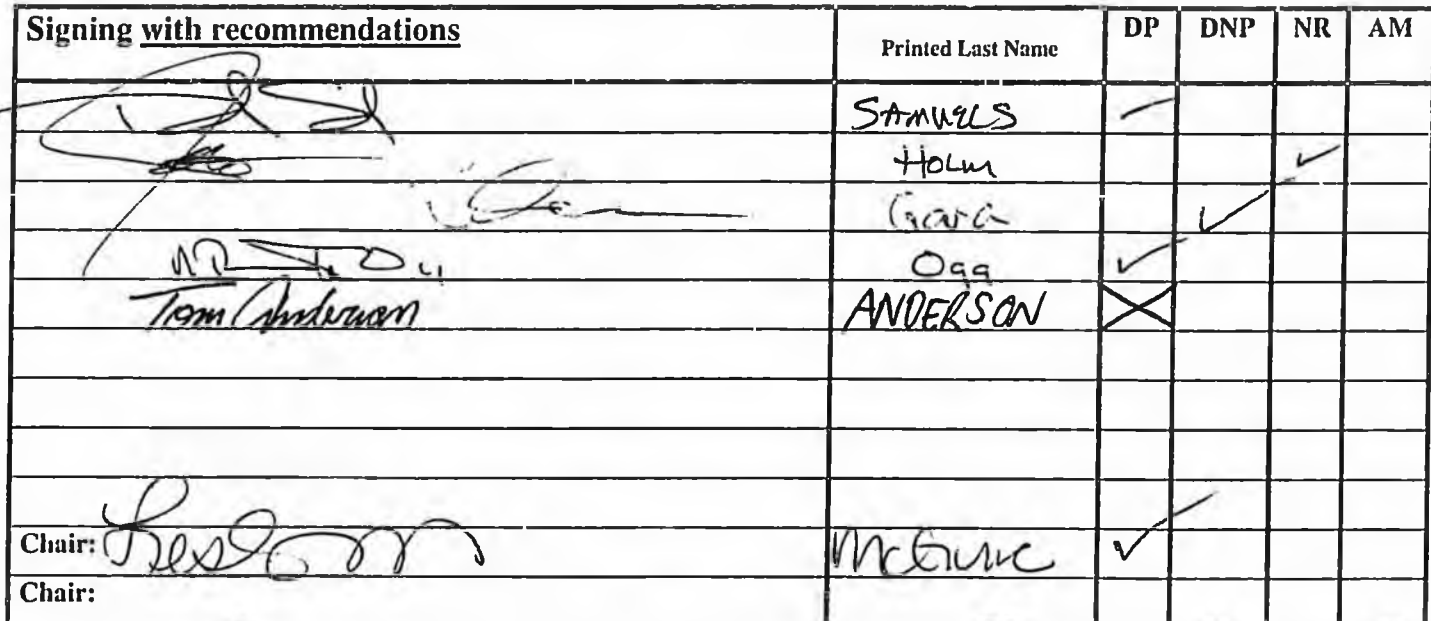 Signing with recommendations Printed Last Name DP DNP NR AM
SAMUELS
Holm ✓
Gara ✓
Ogg ✓
Tom Anderson ANDERSON X
Chair: McGuire ✓
Chair: